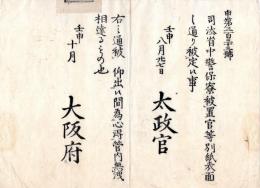 司法省中警保寮被置官等別紙表面
之通り被定候事
壬申
八月廿七日
太政官
右之通被 仰出候間為心得管内無洩
相達るもの也
壬申
十月
大阪府